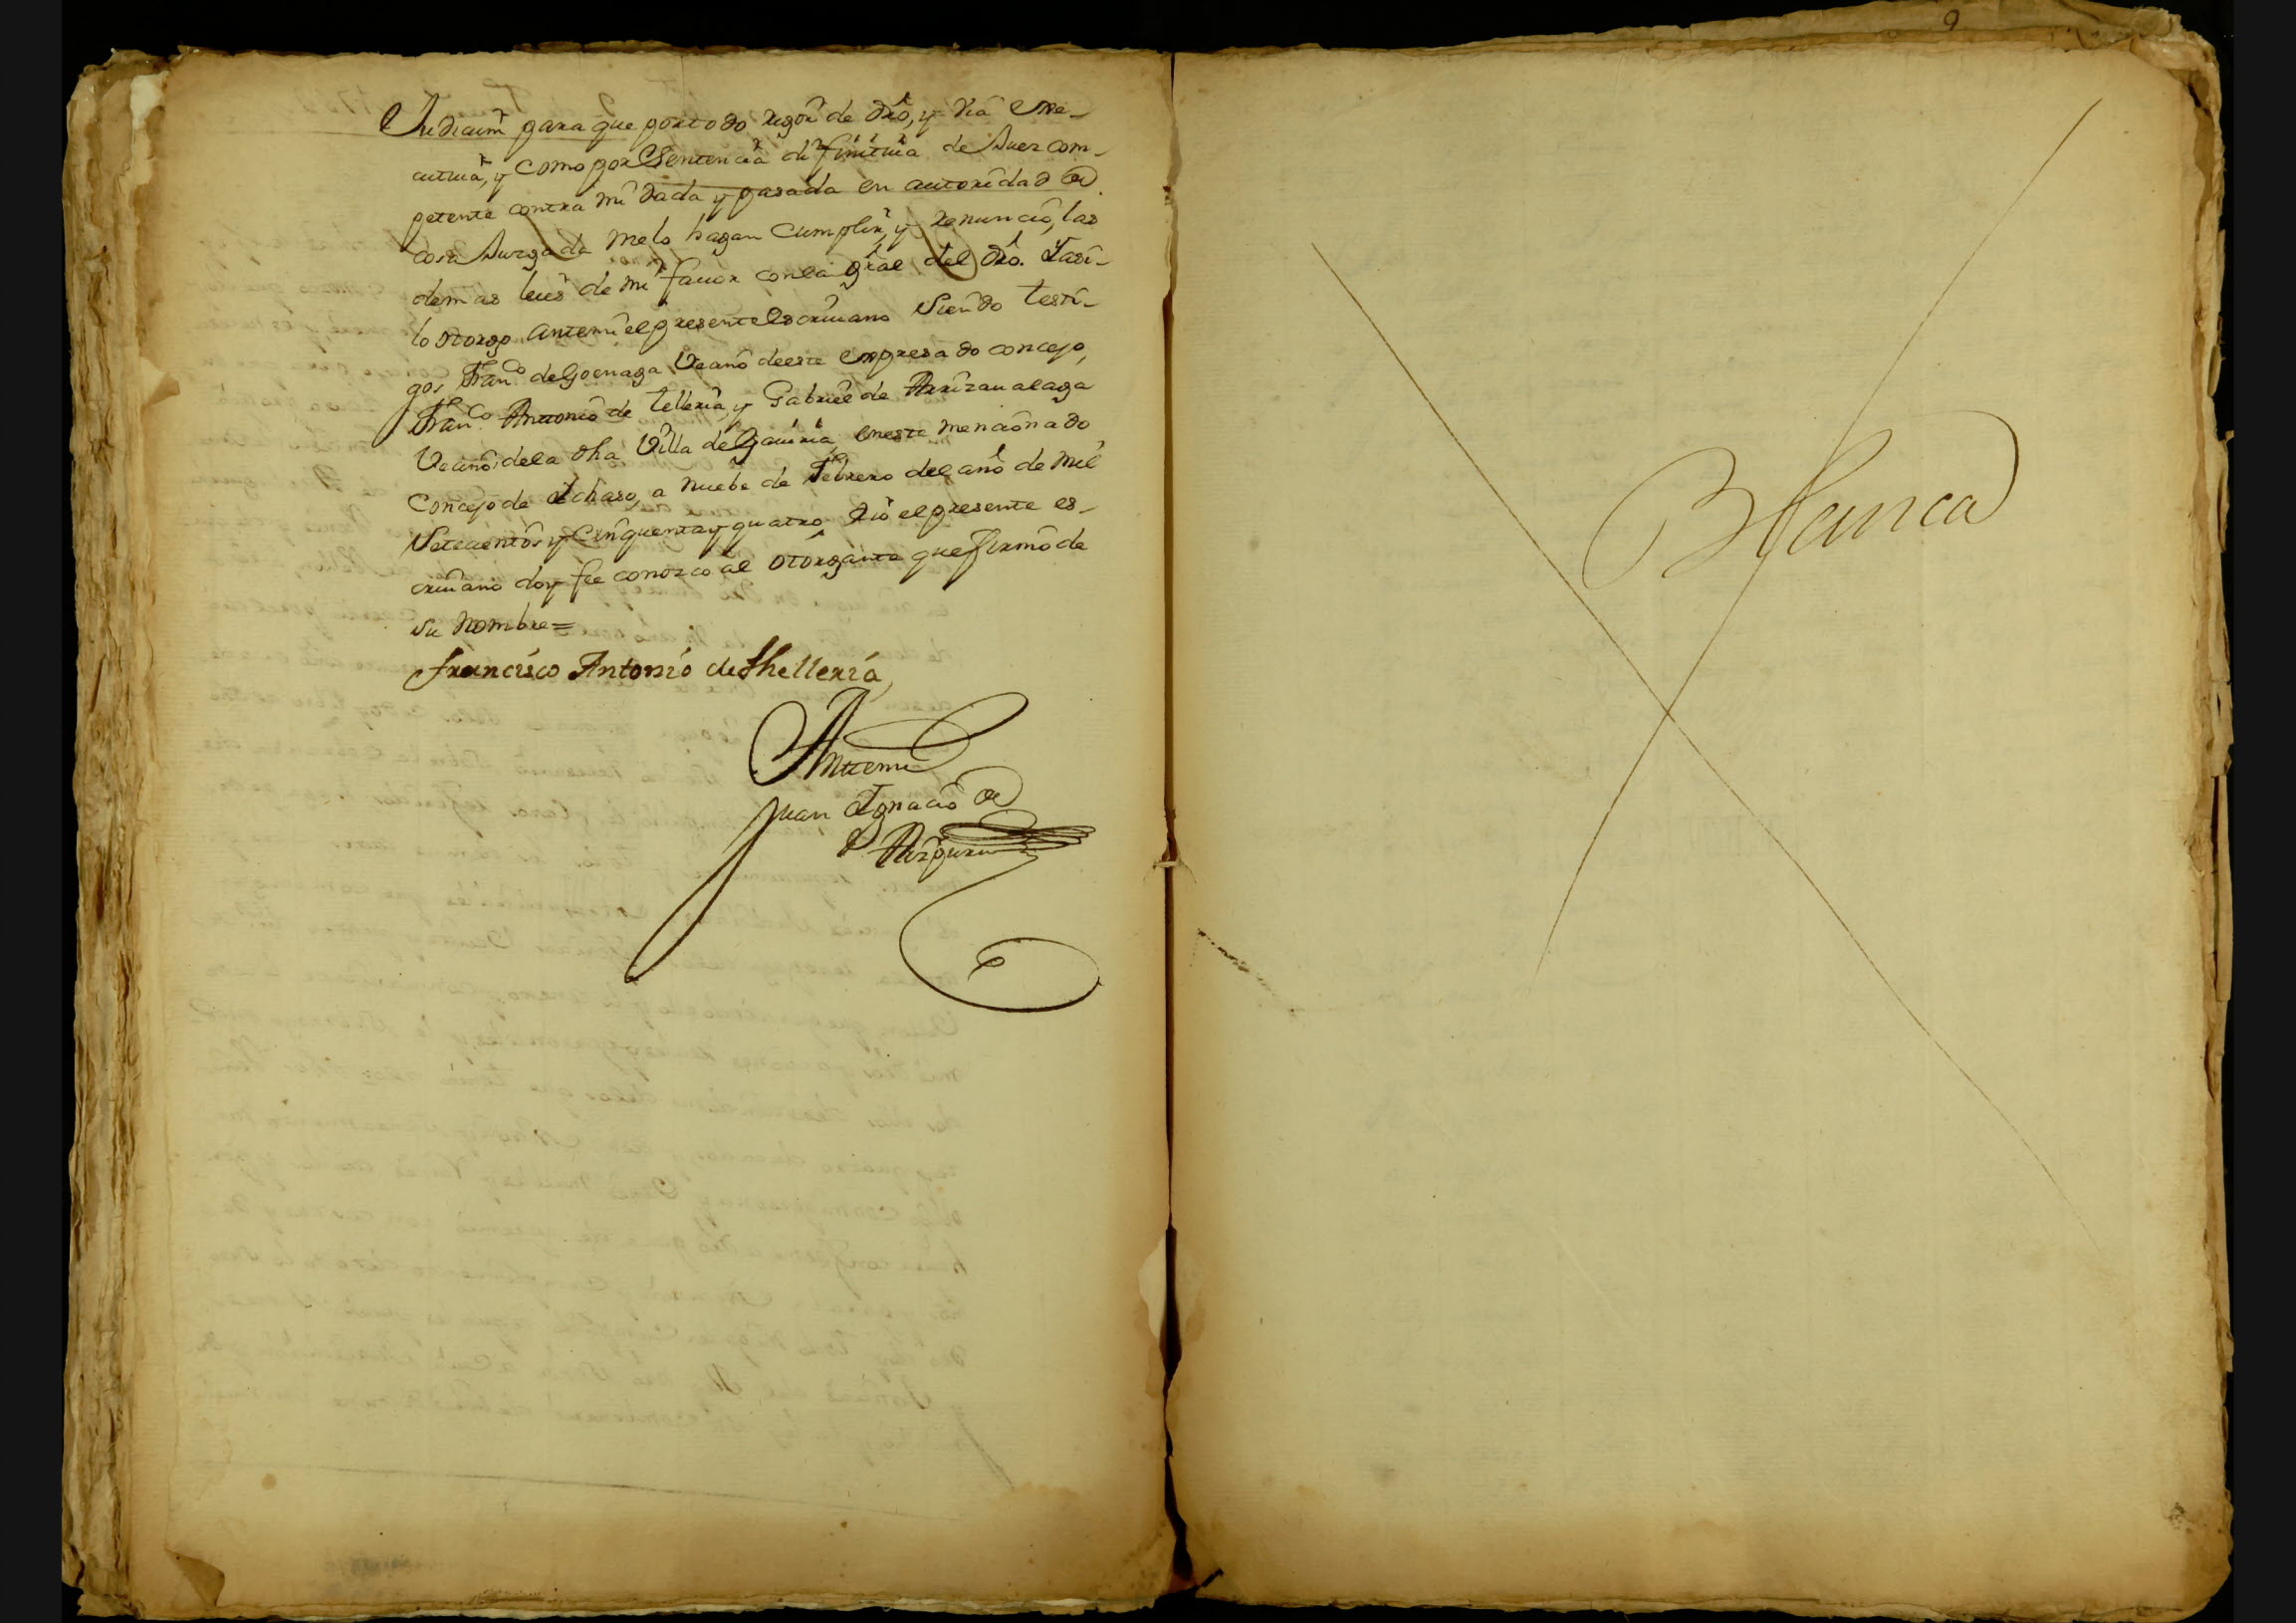 Judicum para que por todo rigor de dro, y via exe-
cutiva, y como por Sentencia difinitiva de Juez com-
petente contra mi dada y pasada en autoridad de
cosa Juzgada me lo hagan cumplir, y renuncio, las
demas leies de mi favor con la gral del dro. Y asi-
lo otorgo ante mi el presente Escrivano siendo testi-
gos Franco de Goenaga Vecino de este expresado concejo,
Franco Antonio de Telleria, y Gabriel de Arrizavalaga
Vecinos de la dha Villa de Gaviria, en este mencionado
Concejo de Ichaso, a nuebe de Febrero del año de mil
Setecientos y Cinquenta y quatro, Yo el presente es-
crivano doy fee conozco al otorgante que firmó de
su nombre=
Francisco Antonio de Thelleria
Ante mi
Juan Ignacio de
9
Blanca